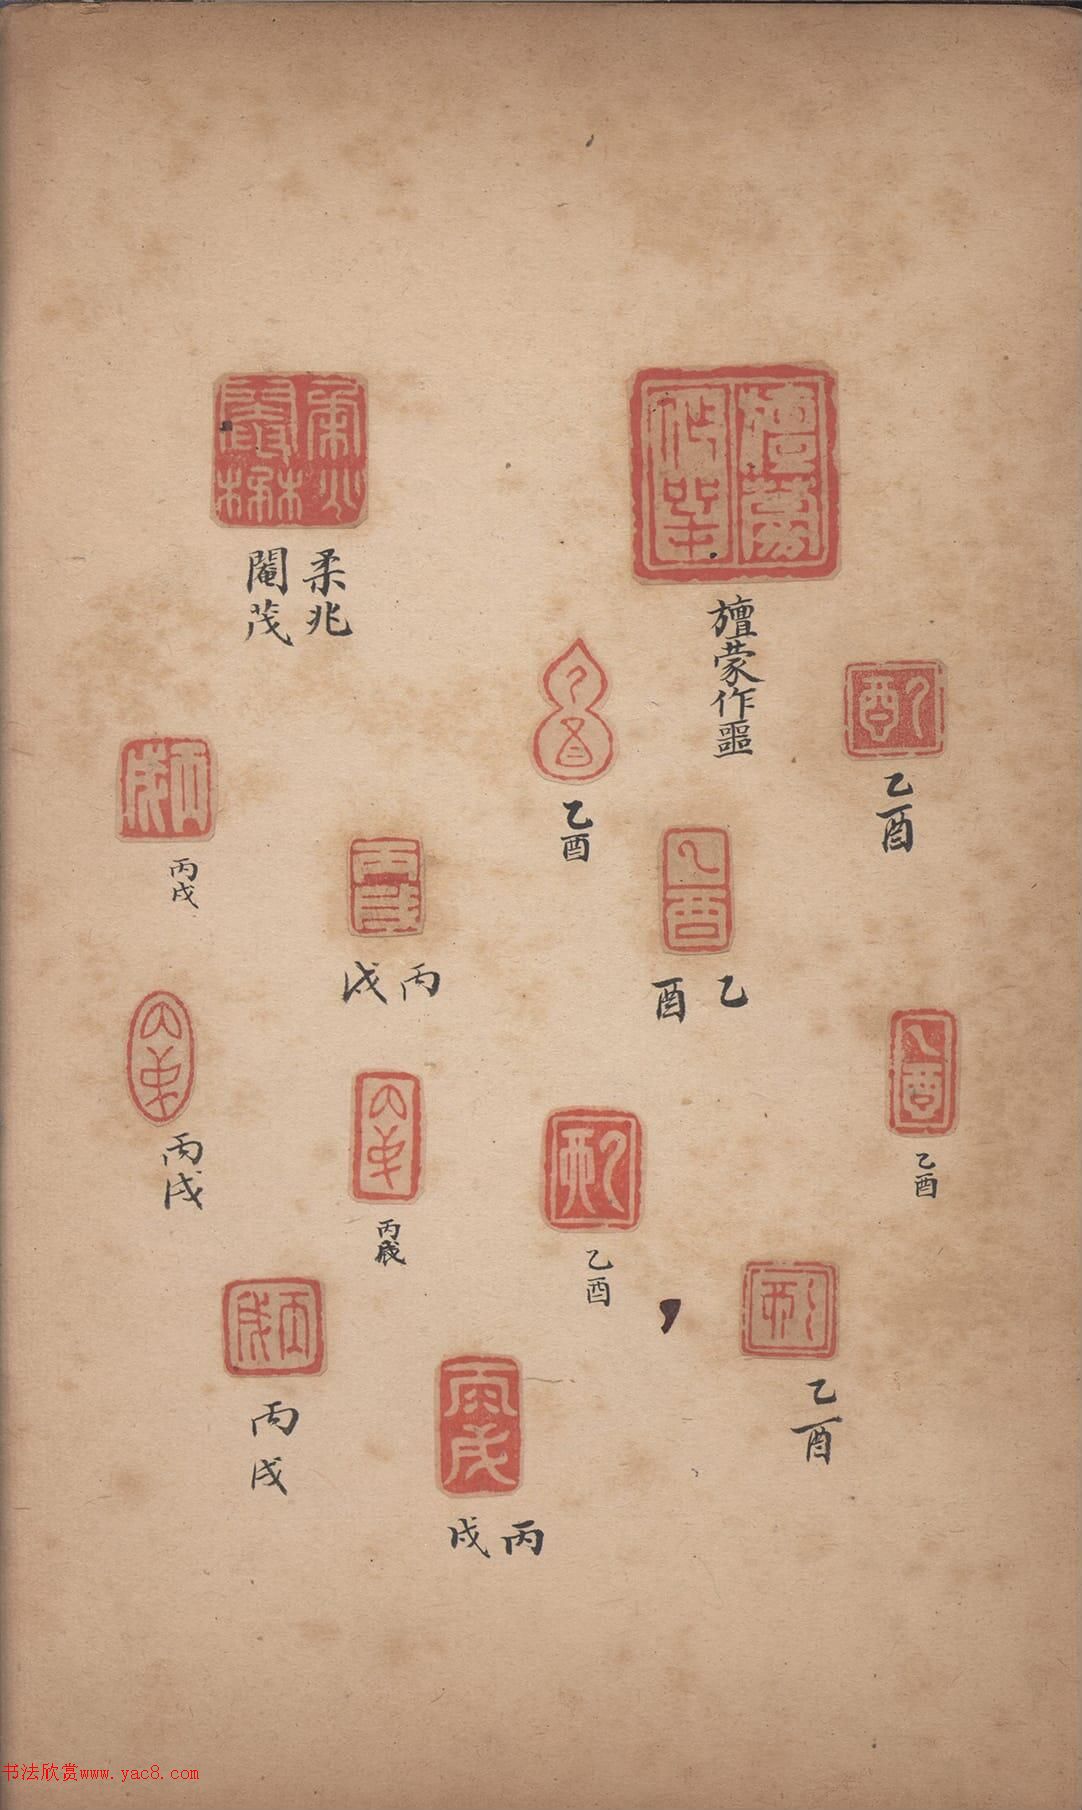 旃蒙作噩
乙酉
乙酉
乙酉
乙酉
乙酉
乙酉
柔兆
閹茂
丙戌
丙戌
丙戌
丙戌
丙戌
丙戌
书法欣赏www.yac8.com